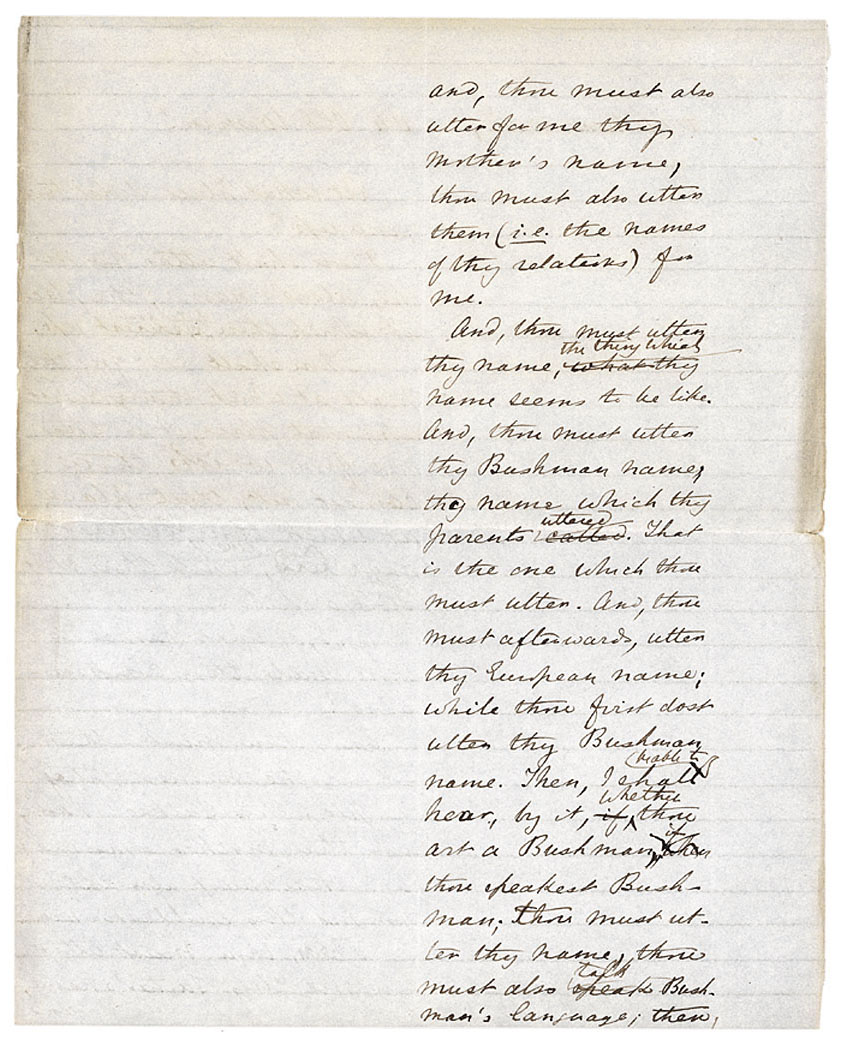 and, thou must also
utter for me thy
mother's name,
thou must also utter
them (i.e. the names
of thy relations) for
me.
And, thou must utter
the thing which
thy name, what thy
name seems to be like.
And, thou must utter
thy Bushman name,
thy name which thy
uttered
parents called. That
is the one which thou
must utter. And, thou
must afterwards, utter
thy European name;
while thou first dost
utter thy Bushman
be able to
name. Then, I shall
whether
hear, by it, if, thou
if
art a Bushman, when
thou speakest Bush-
man; thou must ut-
ter thy name, thou
talk
must also speak Bush-
man's language; then,